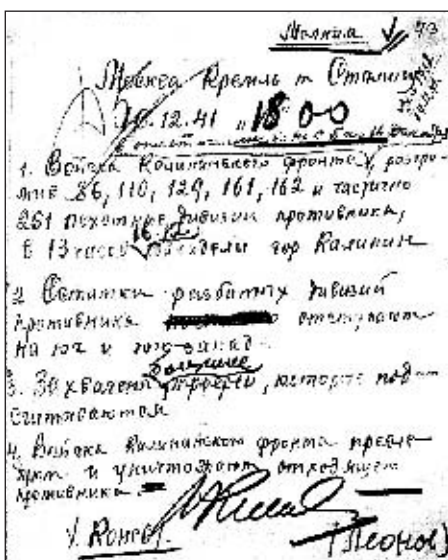 Молния 73
Москва Кремль т Сталину
16.12.41 "18 00
1. Войска Калининского фронта, разгро-
мив 86, 110, 129, 161, 162 и частично
251 пехотные дивизии противника,
в 13 часов 16.XII овладели гор Калинин
2 Остатки разбитых дивизий
противника отступают
на юг и юго-запад.
3. Захвачены большие трофеи, которые под-
считываются
4. Войска Калининского фронта
и уничтожают отходящего
противника.
Конев. Леонов